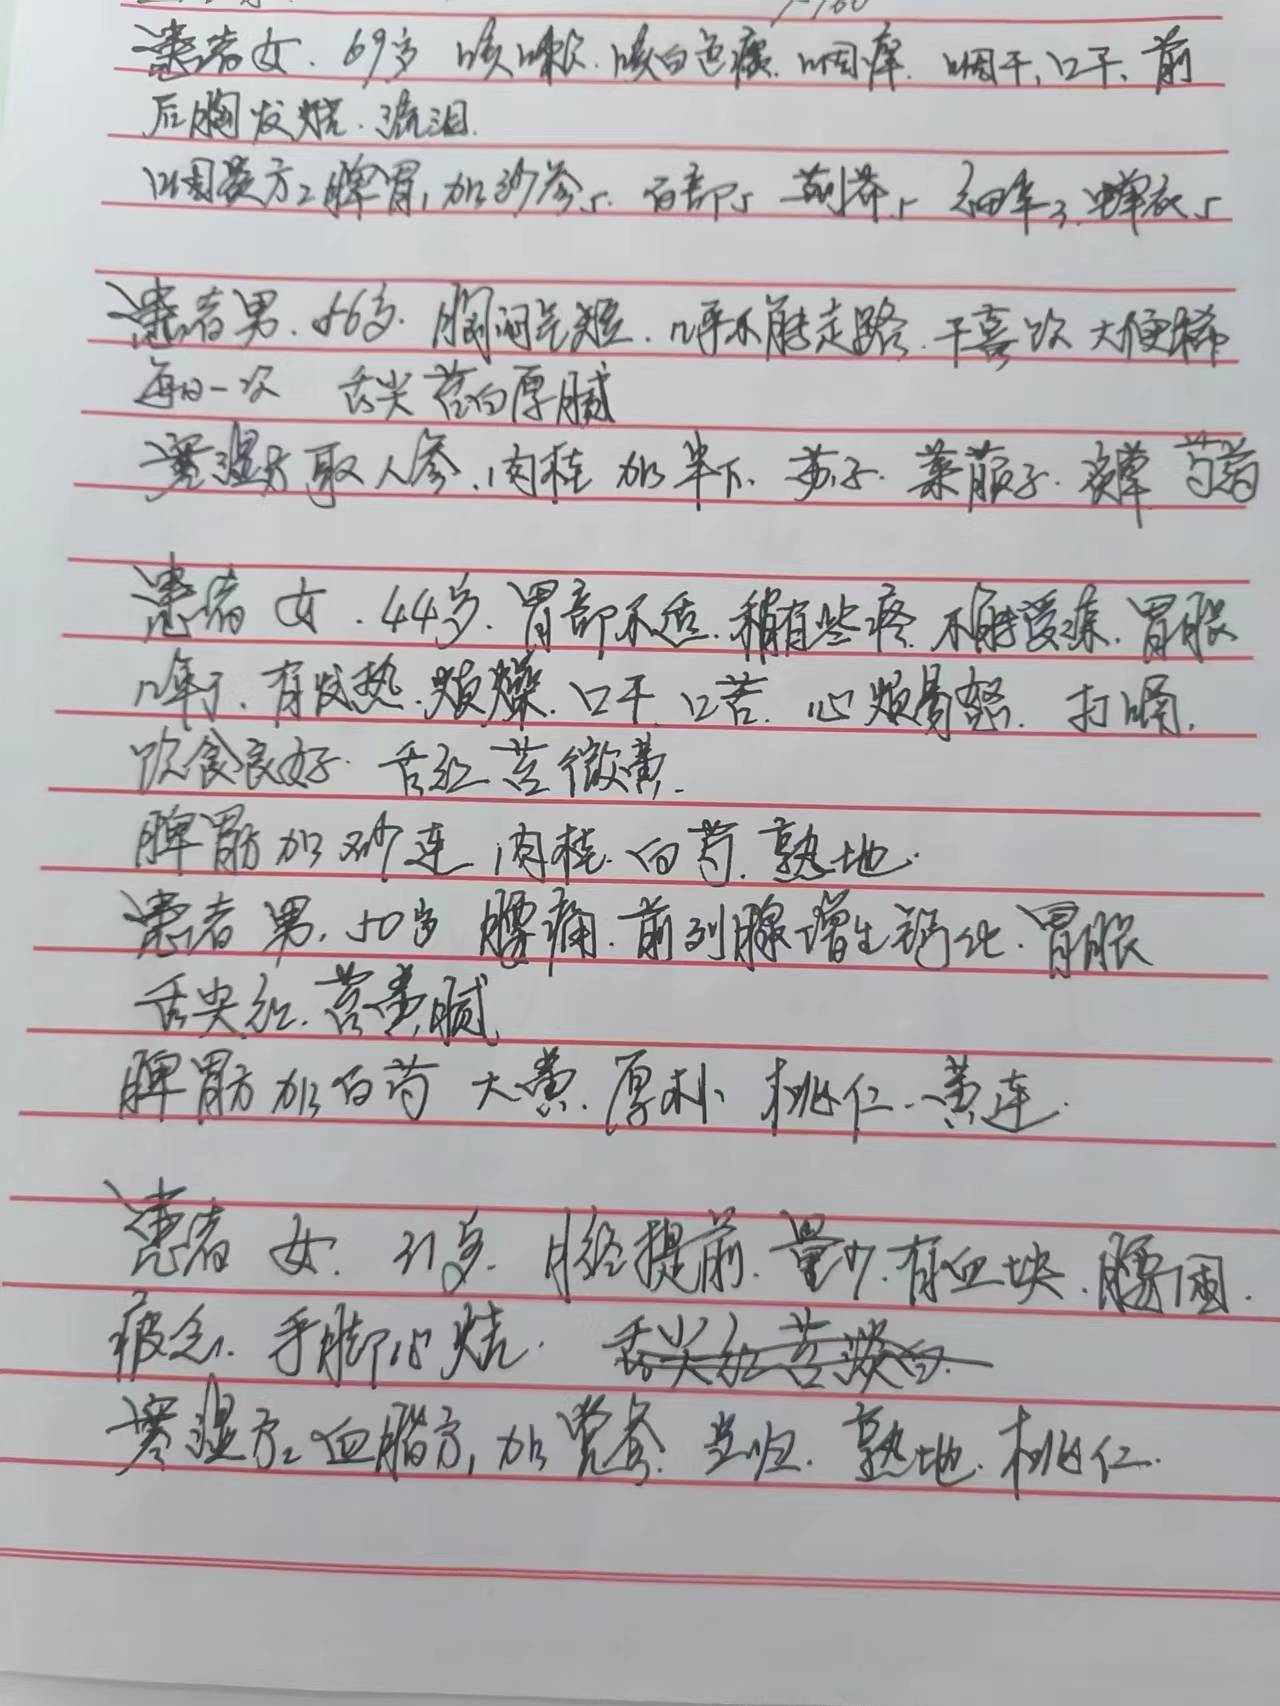 患者女.69岁 咳嗽.咳白色痰.咽痒.咽干、口干、前
后胸发烧.流泪.
脾胃1加沙参5.百部5 荆芥5 细辛3.蝉衣5
患者男.66岁.胸闷气短.几乎不能走路.干喜饮 大便稀
每日一次 舌尖 苔白厚腻
寒湿方取人参.肉桂 加半下、苏子.莱菔子. 芍药
患者 女.44岁.胃部不适.稍有些疼.不能受凉.胃胀
几年了、有发热.烦燥.口干.口苦.心烦易怒.打嗝,
饮食良好.舌红苔微黄.
脾胃方加 连 肉桂.白芍.熟地.
患者 男.50岁 腰痛.前列腺增生钙化.胃胀
舌尖红.苔黄腻
脾胃方加白芍 大黄.厚朴、桃仁.黄连.
患者 女.31岁.月经提前.量少.有血块.腰困.
疲惫.手脚心烧.舌尖红苔淡白.
寒湿方2血脂方1加党参.当归.熟地.桃仁.